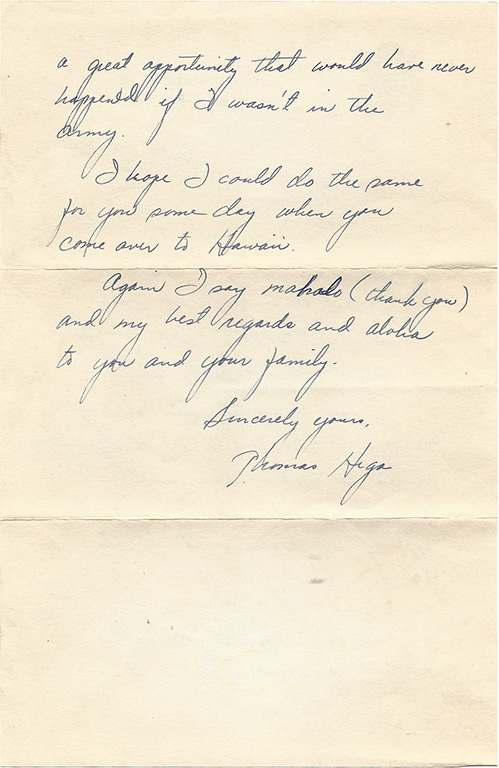 a great opportunity that would have never
happened if I wasn't in the
army.
I hope I could do the same
for you some day when you
come over to Hawaii.
Again I say mahalo (thank you)
and my best regards and aloha
to you and your family.
Sincerely yours,
Thomas Higa